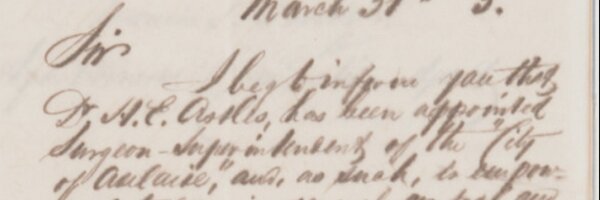 March 31st 3.
Sir
I beg to inform you that
Dr. H. E. Astles, has been appointed
Surgeon-Superintendent of the "City
of Adelaide", and, as such, to empow-